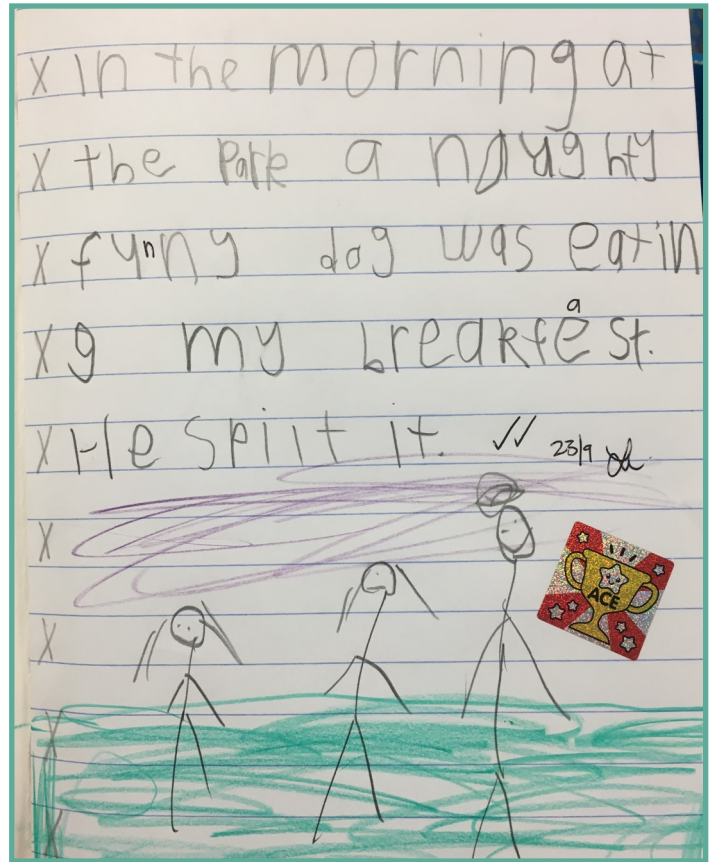 x In the morning at
x the Park a naughty
x fynny dog was eatin
x g my breakfest.
a
x He Spilt it. ✓✓ 23/9
x
x
ACE
x
x